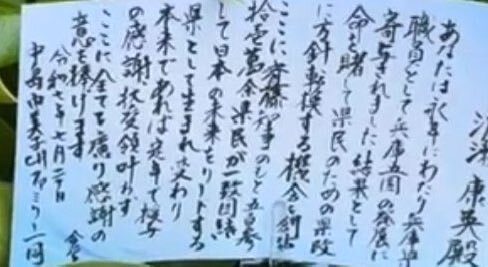 康英殿
あなたは永年にわたり兵庫県
職員として兵庫五国の発展に
寄与されました 結果として
命を賭して県民のための県政
に方針転換する機会を創出
ここに斉藤知事のもと五百四
拾壱萬余県民が一致団結
して日本の未来をリードする
県として生まれ変わり
本来であれば定年で授与
の感謝状受領叶わず
ここに全てを慮り感謝の
意を捧げます
令和七年七月二日